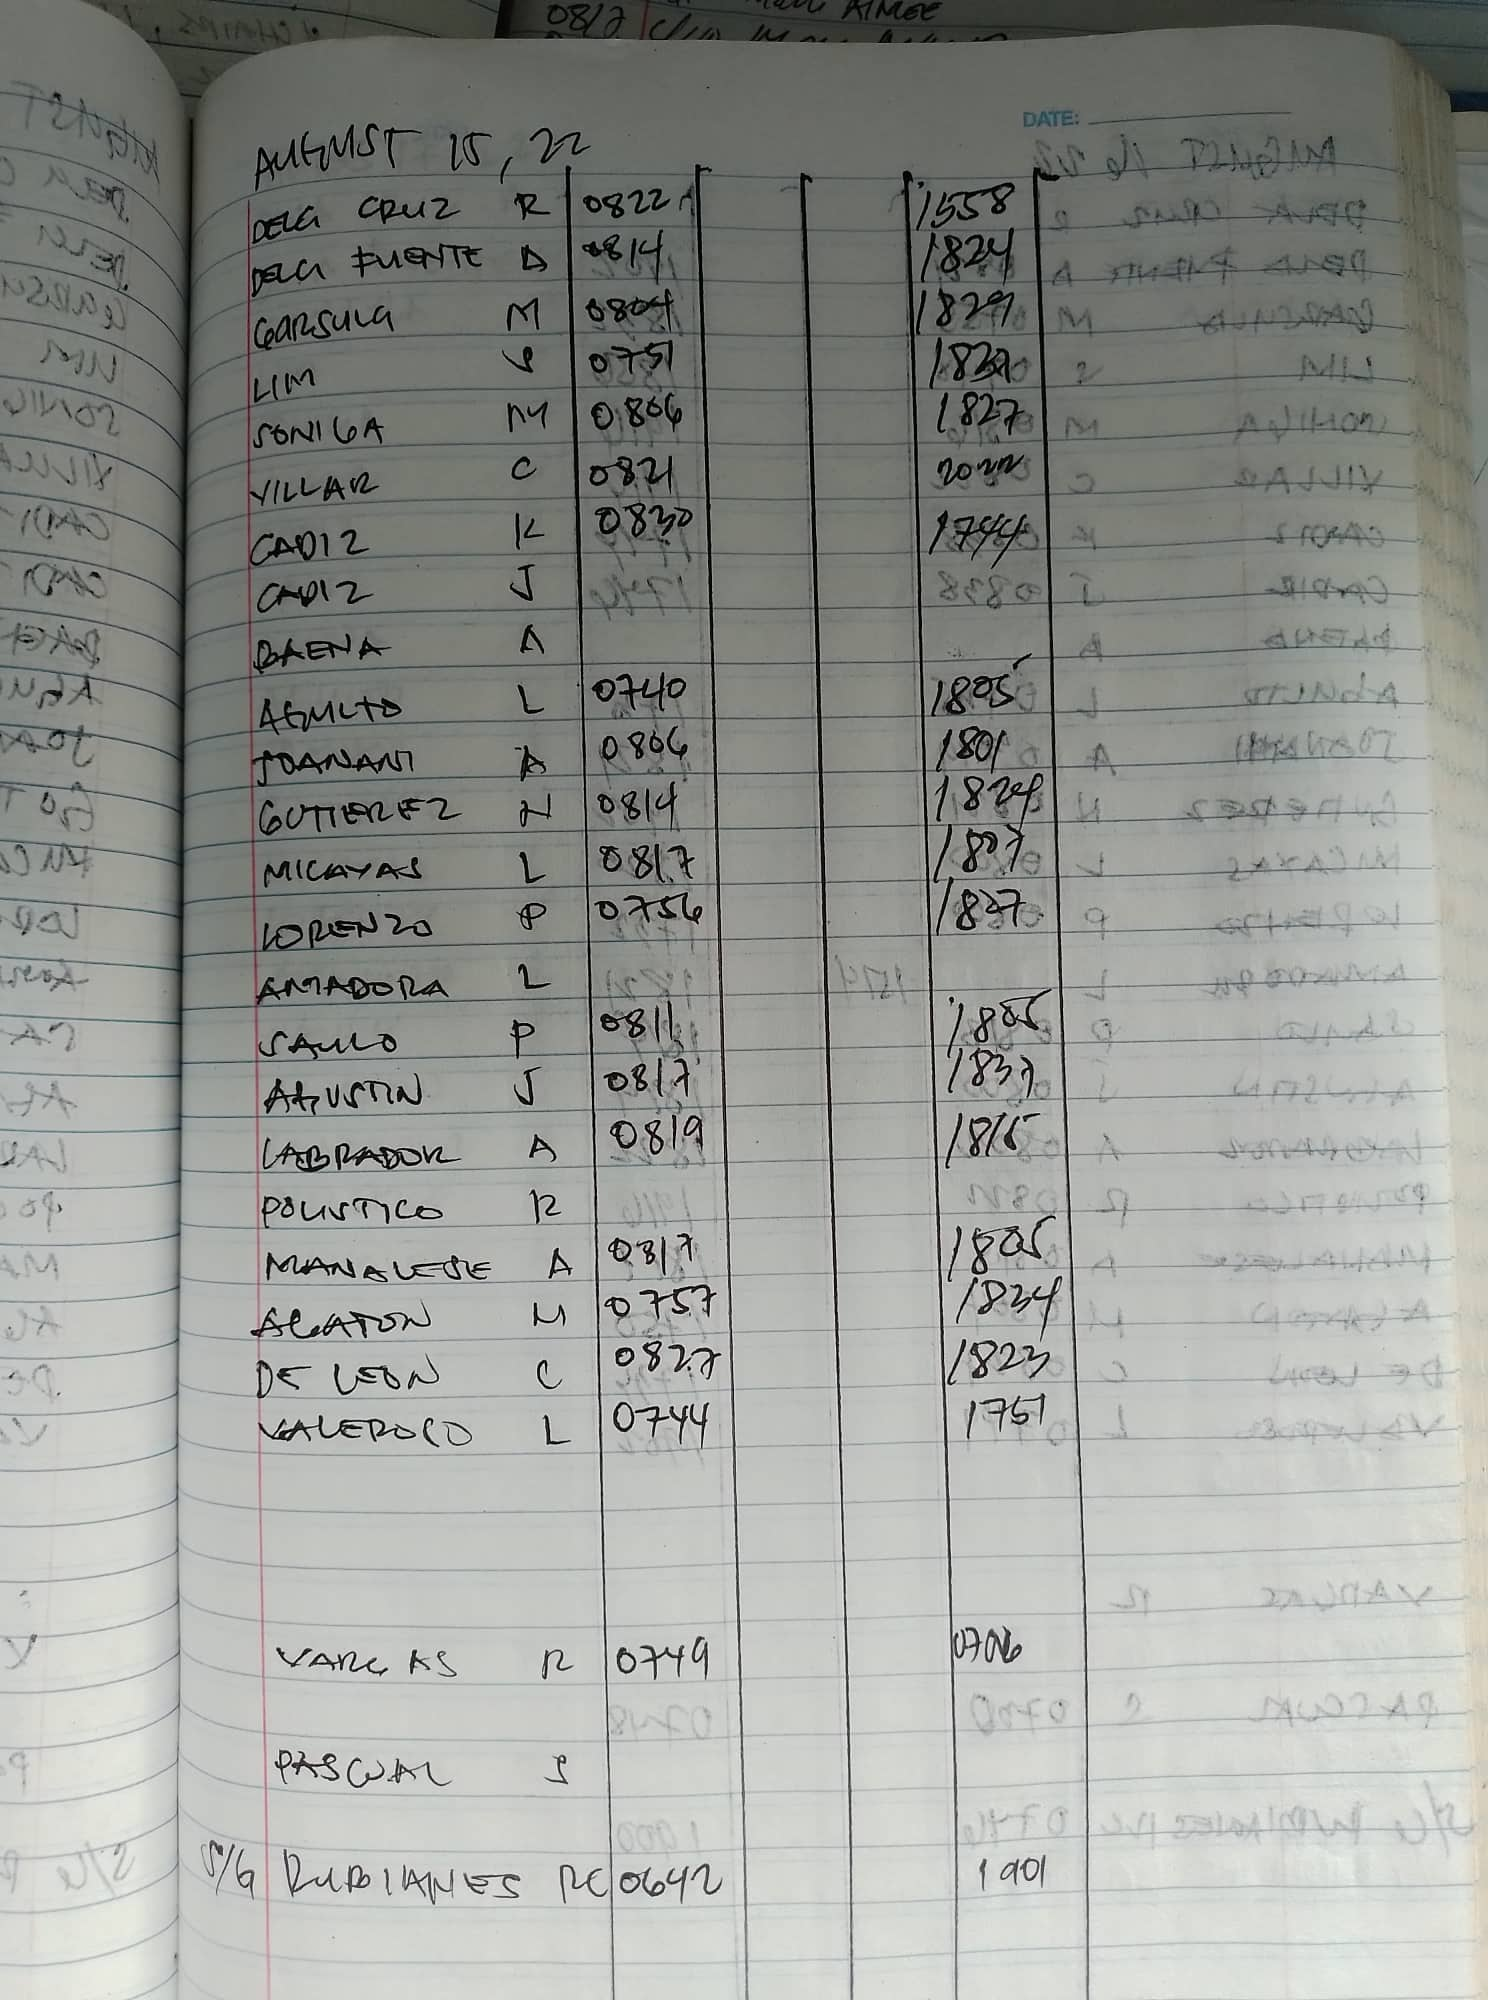 0817
AIMEE
DATE:
AUGUST 15, 22
DELA CRUZ R 0822 1558
DELA FUENTE A 0814 1824
GARSULA M 0804 1829
LIM S 0751
SONIGA M 0806 1827
VILLAR C 0821 2022
CADIZ K 0830 1744
CADIZ J
BAENA A
AGULTO L 0740 1805
JOANANI A 0806 1801
GUTIEREZ N 0814 1824
MICAYAS L 0817 1807
LORENZO P 0756 1827
AMADORA L
SAULO P 0811 1805
AGUSTIN J 0817 1837
LABRADOR A 0819 1815
POLISTICO R
MANALESE A 0817 1805
AGATON M 0757 1834
DE LEON C 0827 1823
VALEROSO L 0744 1751
VARGAS R 0749 0706
PASCUAL S
S/G RUBIANES RC 0642 1901